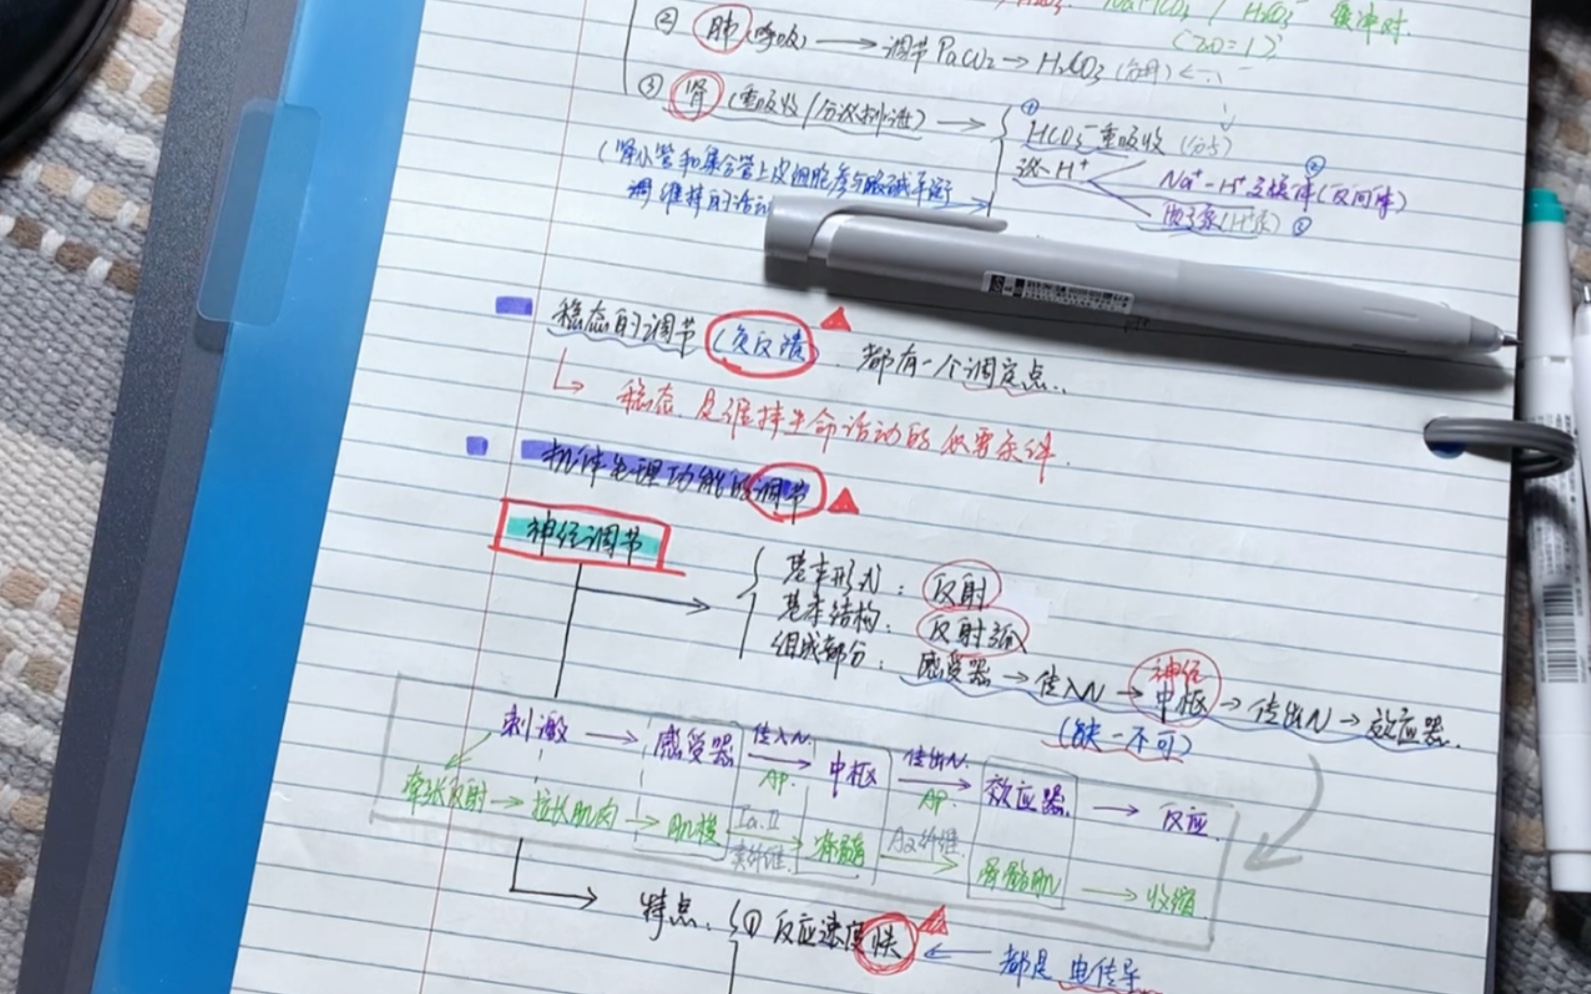 NaHCO₃ / H₂CO₃ 缓冲对.
(20=1)
② 肺(呼吸) → 调节PaCO₂ → H₂CO₃ (分母)
③ 肾 (重吸收/分泌排泄) → ① HCO₃⁻重吸收 (分子)
泌H⁺
Na⁺-H⁺交换体(反向体) ②
质子泵(H⁺泵) ③
(肾小管和集合管上皮细胞参与酸碱平衡
调维持的活动
稳态的调节 (负反馈). 都有一个调定点..
↳ 稳态.是维持生命活动的必要条件.
机体生理功能的调节
神经调节
基本形式: 反射
基本结构: 反射弧
组成部分: 感受器 → 传入N → 神经中枢 → 传出N → 效应器.
(缺一不可)
刺激 → 感受器 传入N. AP. → 中枢 传出N. AP. → 效应器 → 反应.
牵张反射 → 拉长肌肉 → 肌梭 Ia.II 类纤维. → 脊髓 Aα纤维. → 骨骼肌 → 收缩
特点: ① 反应速度快 ← 都是电传导